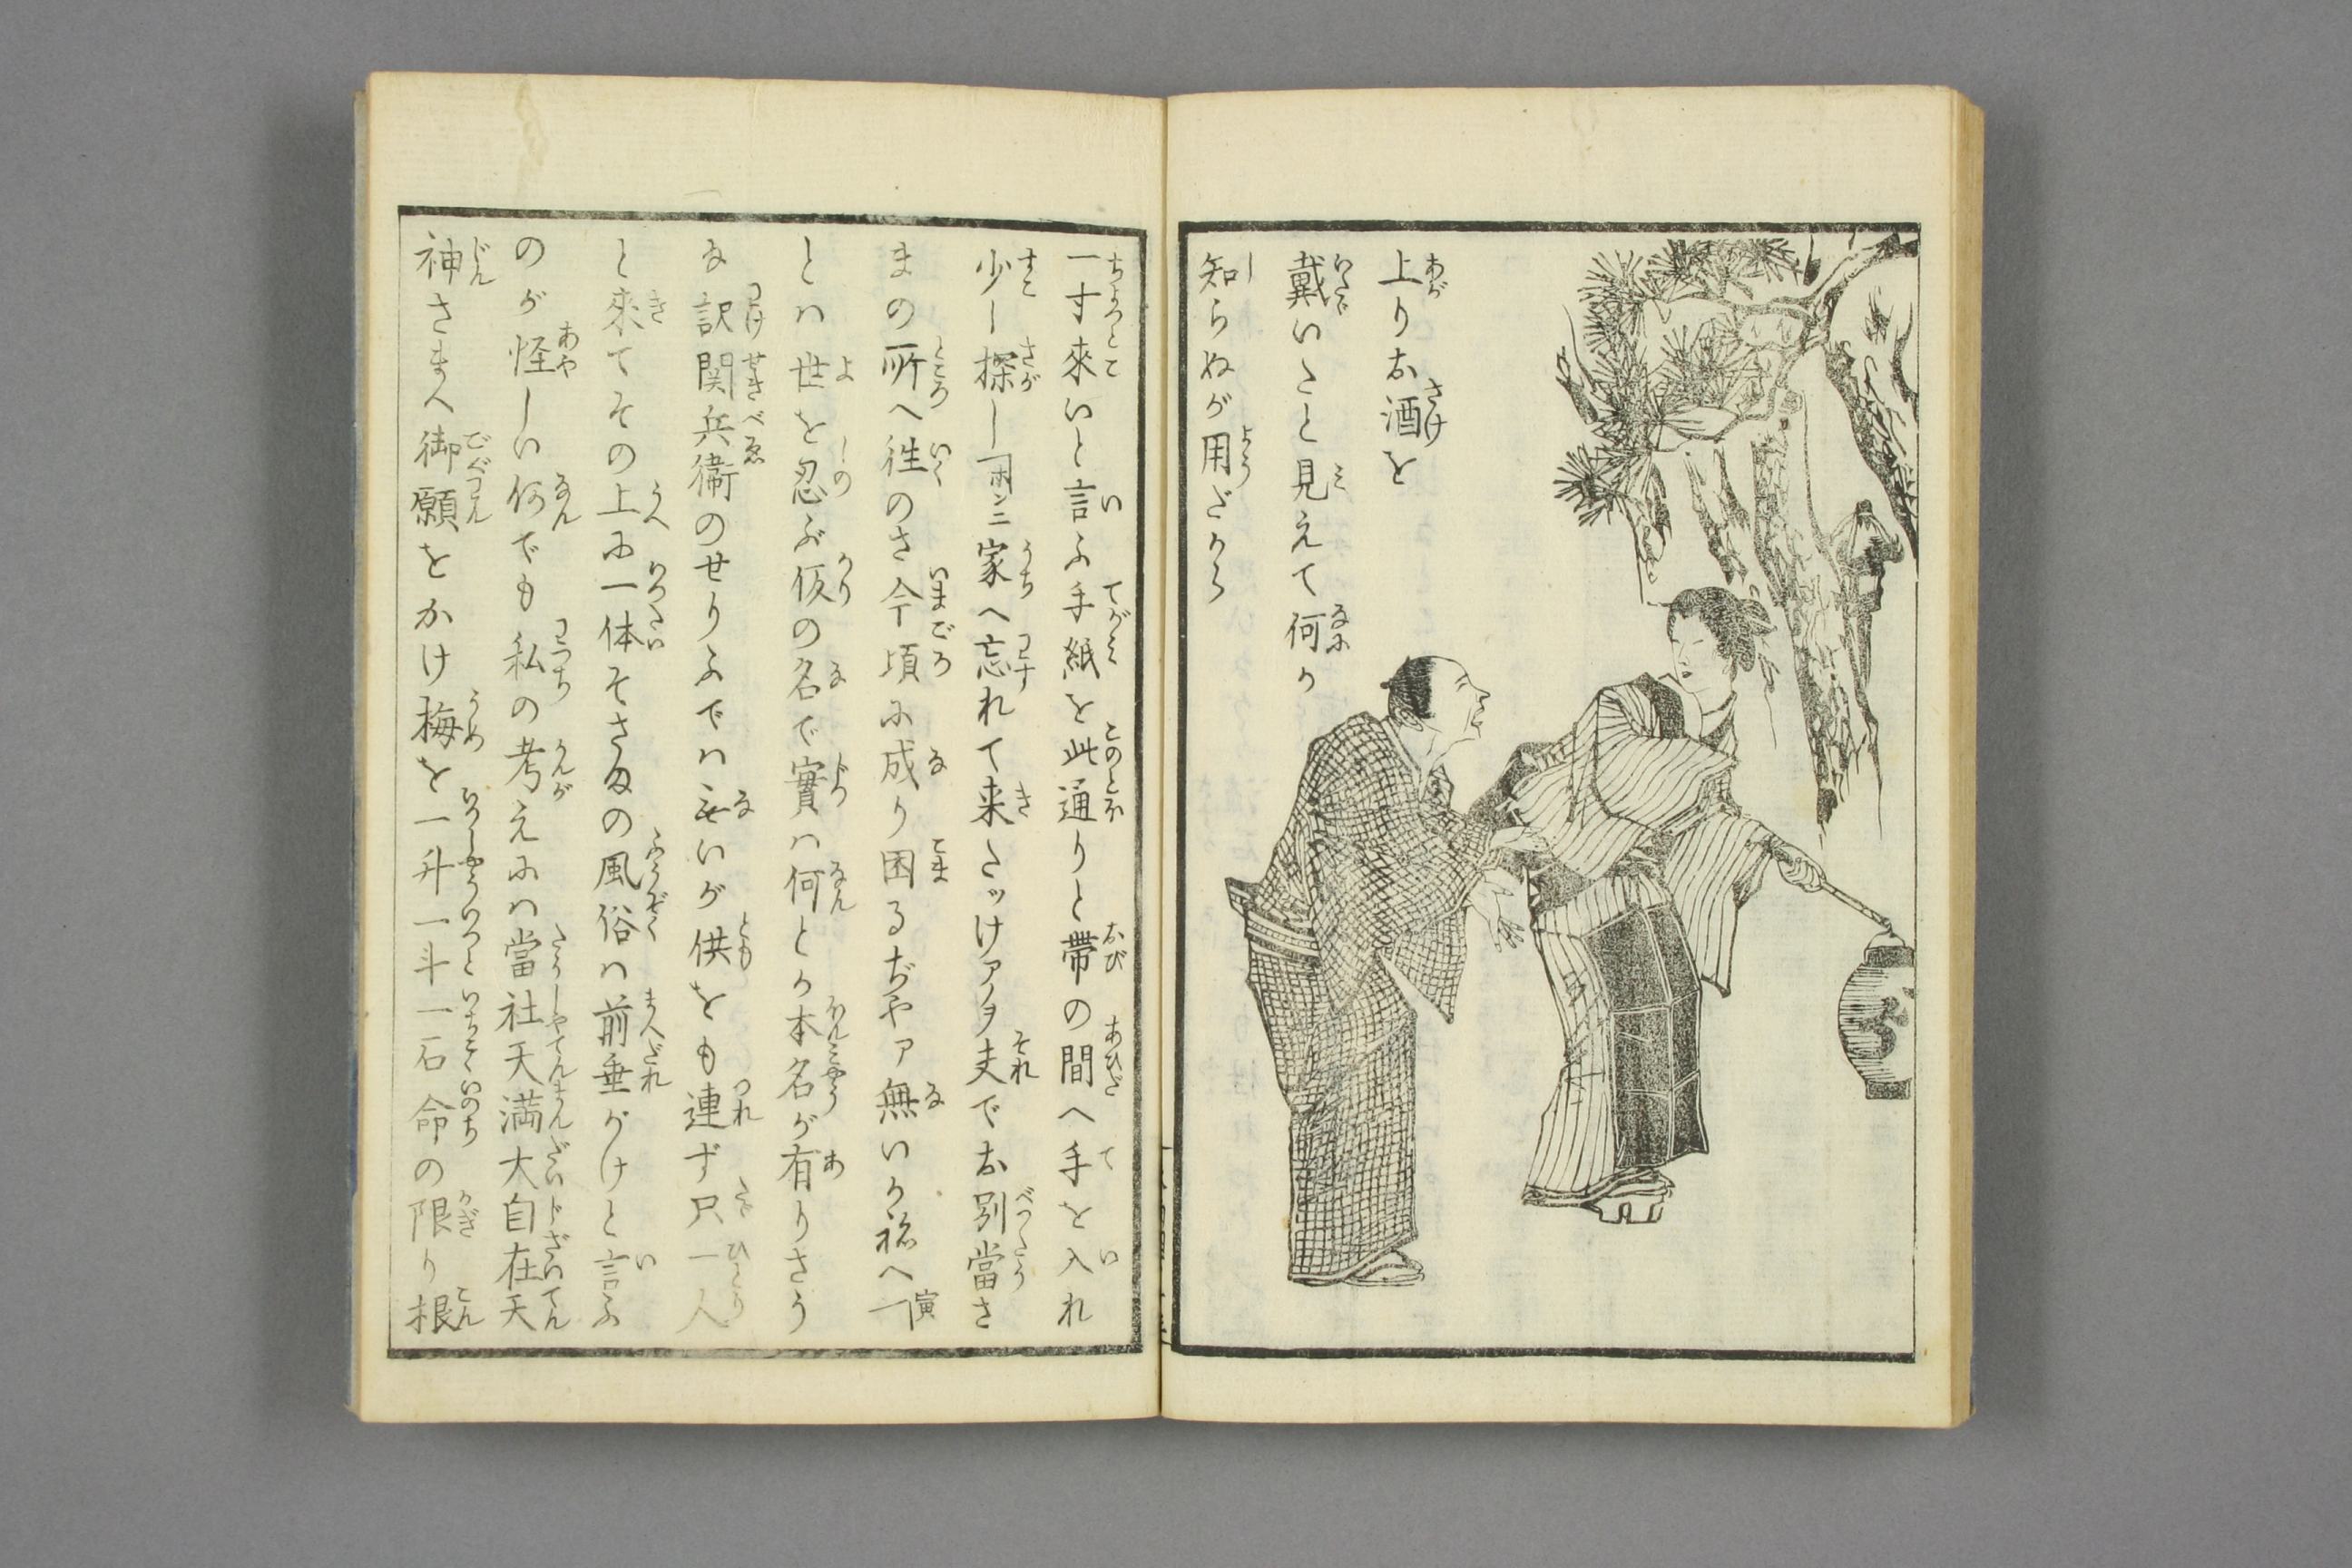 上りお酒を
戴いたと見えて何か
知らぬが用だから
一寸來いと言ふ手紙を此通りと帶の間へ手を入れ
少し探し「ホンニ家へ忘れて来たッけアノヲ夫でお別當さ
まの所へ往のさ今頃に成り困るぢやア無いか祢へ「寅
とハ世を忍ぶ仮の名で實ハ何とか本名が有りさう
な訳関兵衞のせりふでハ無いが供をも連ず只一人
と來てその上に一体そさまの風俗ハ前垂がけと言ふ
のが怪しい何でも私の考えにハ當社天満大自在天
神さまへ御願をかけ梅を一升一斗一石命の限り根